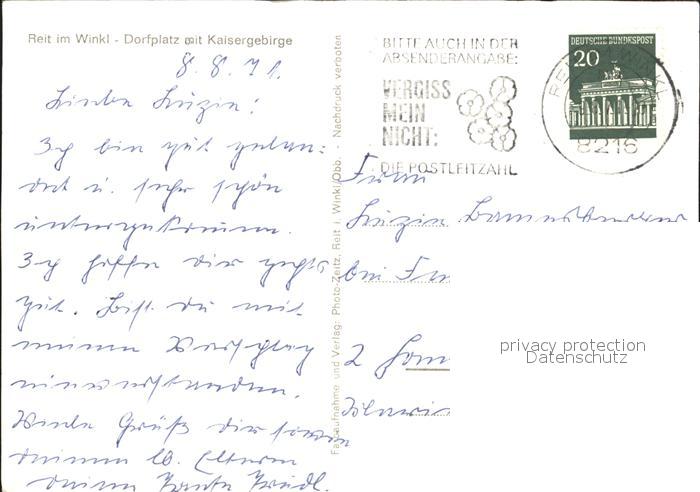 Reit im Winkl - Dorfplatz mit Kaisergebirge
8.8.71.
Liebe Luzia!
Ich bin gut gelan=
det u. sehr schön
untergekommen.
Ich hoffe dir geht's
gut. Bist du mit
meinem Vorschlag
einverstanden.
Viele Grüße dir sowie
deinen lb. Eltern
deine Tante Friedl.
Farbaufnahme und Verlag: Photo-Zeitz, Reit i. Winkl/Obb. - Nachdruck verboten
BITTE AUCH IN DER
ABSENDERANGABE:
VERGISS
MEIN
NICHT:
DIE POSTLEITZAHL
DEUTSCHE BUNDESPOST
20
REIT IM WINKL
8216
Frau
Luzia
bei
2 Ham
privacy protection
Datenschutz